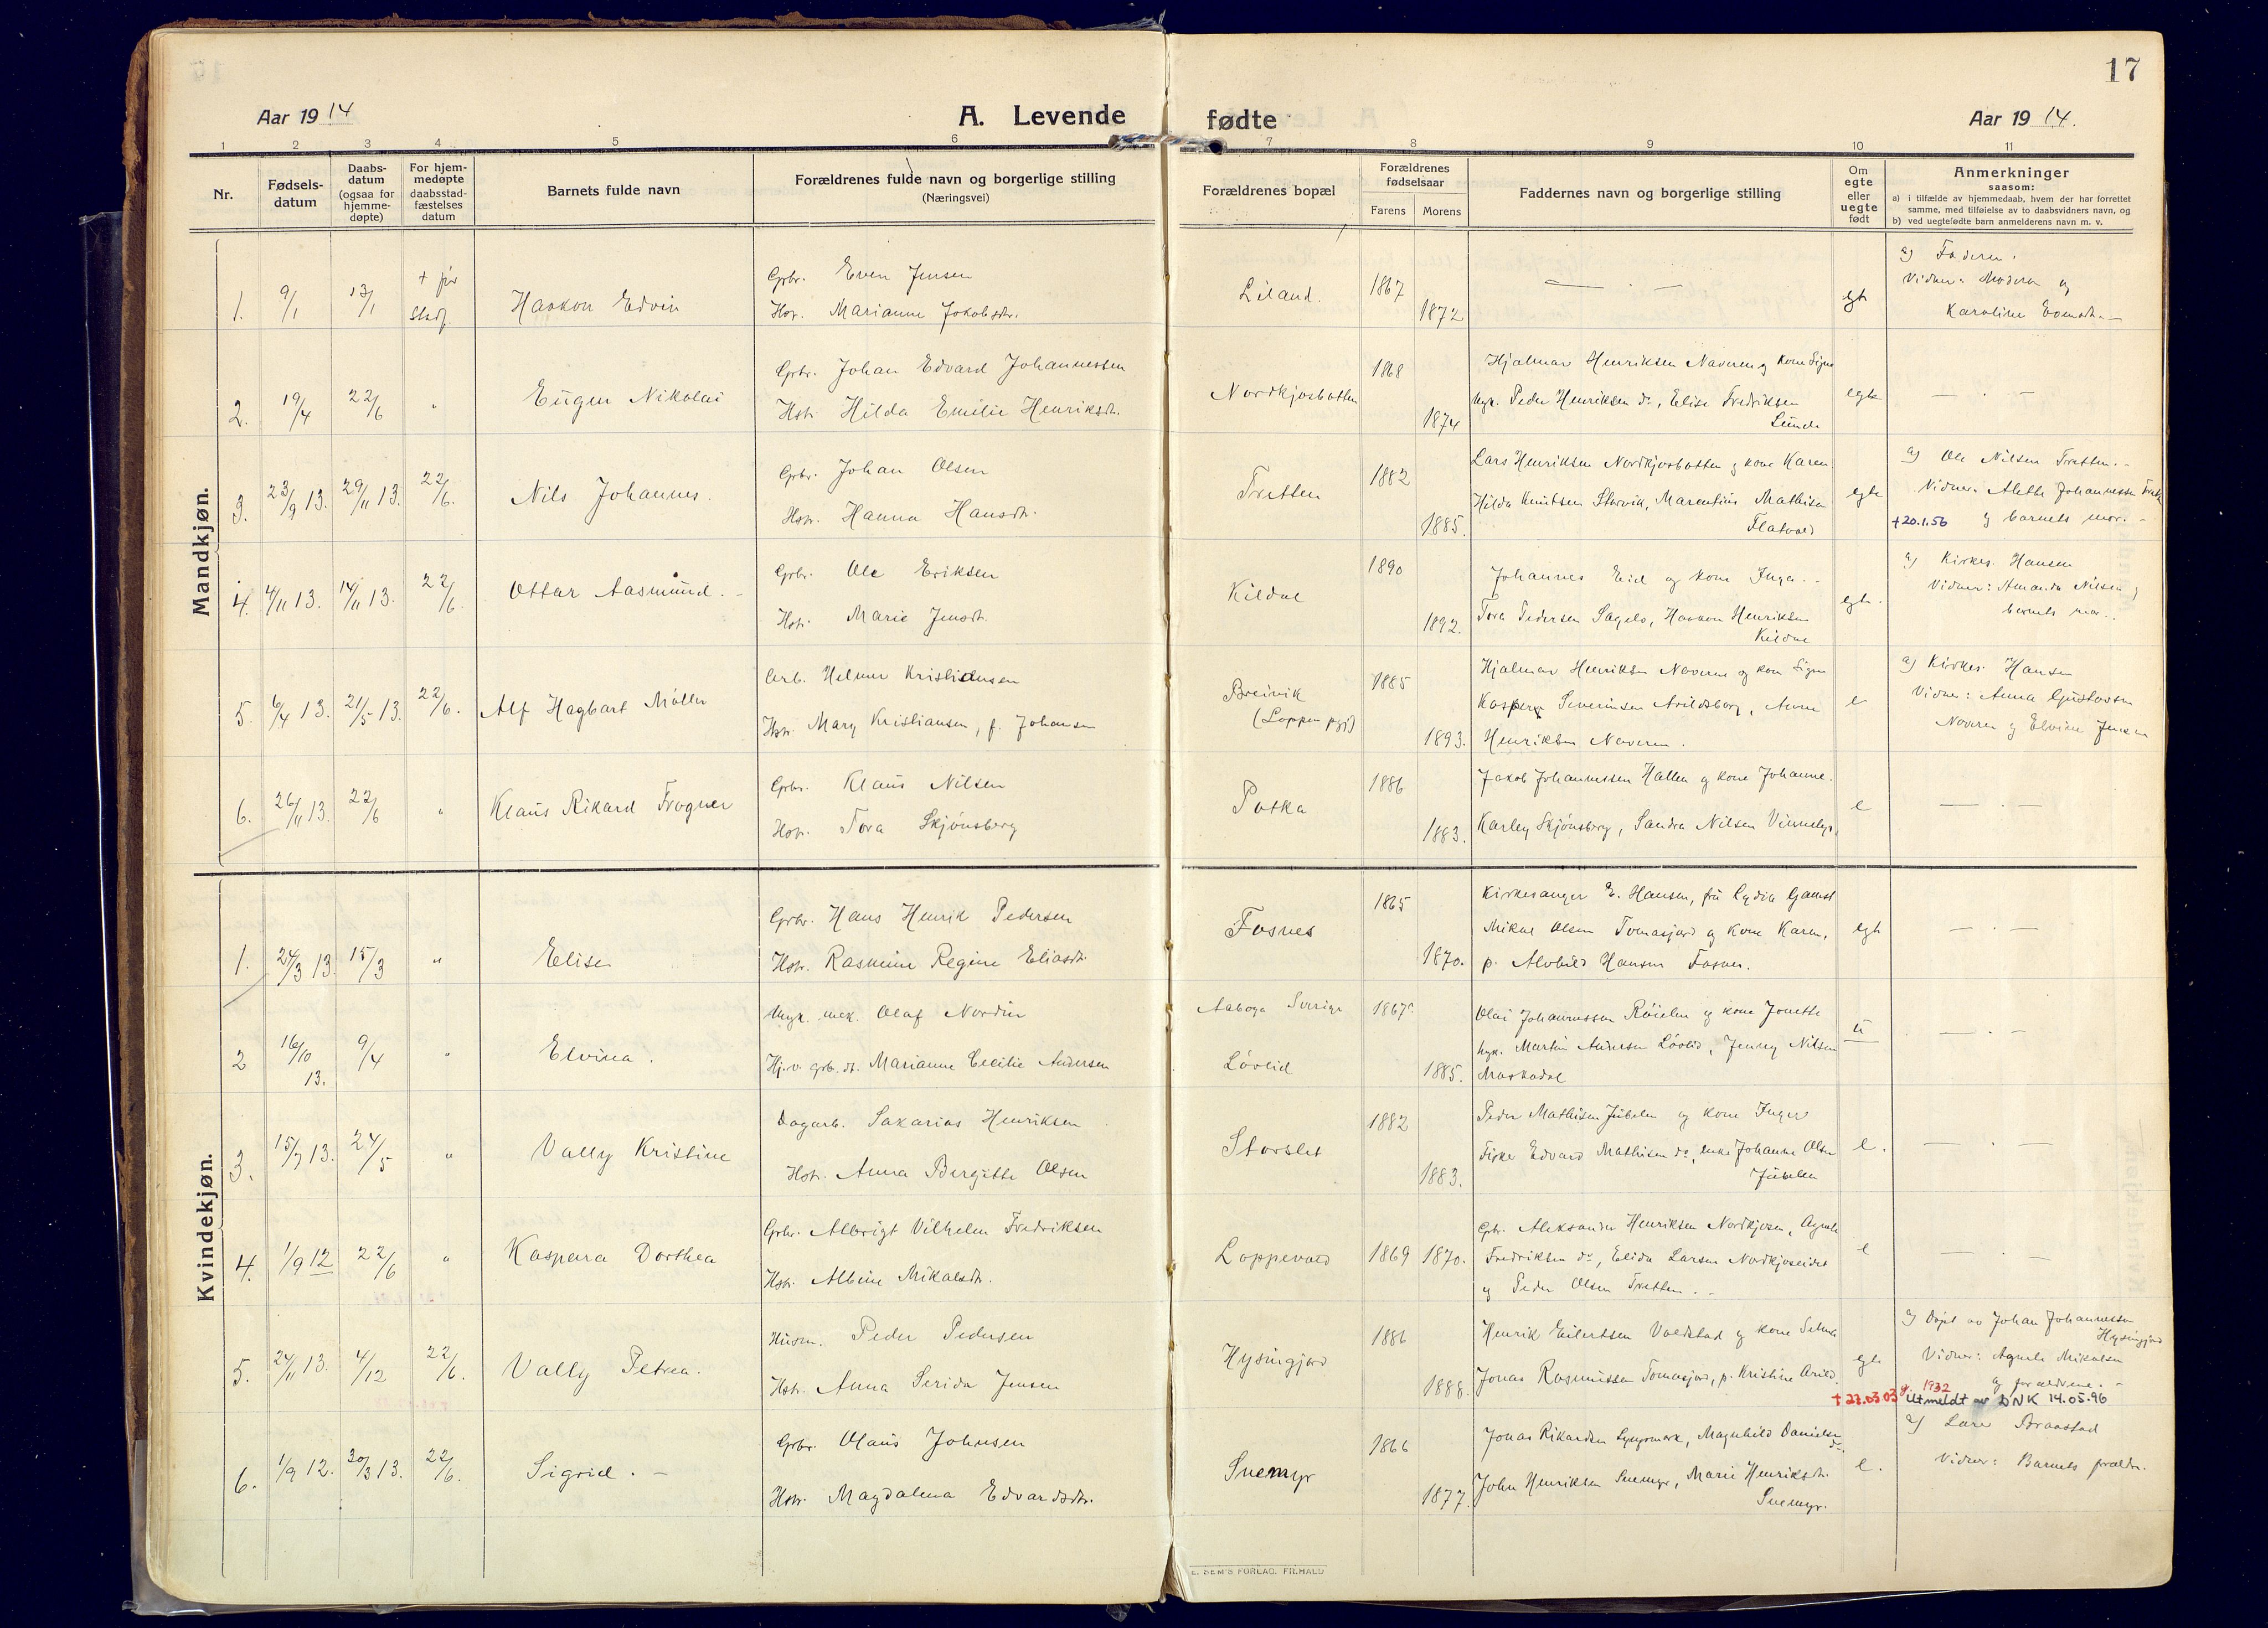 17
Aar 1914
A. Levende fødte
Aar 1914.
1 2 3 4 5 6 7 8 9 10 11
Nr.
Fødsels-
datum
Daabs-
datum
(ogsaa for
hjemme-
døpte)
For hjem-
medøpte
daabsstad-
fæstelses
datum
Barnets fulde navn
Forældrenes fulde navn og borgerlige stilling
(Næringsvei)
Forældrenes bopæl
Forældrenes
fødselsaar
Farens Morens
Faddernes navn og borgerlige stilling
Om
egte
eller
uegte
født
Anmerkninger
saasom:
a) i tilfælde av hjemmedaab, hvem der har forrettet
samme, med tilføielse av to daabsvidners navn, og
b) ved uegtefødte barn anmelderens navn m. v.
Mandkjøn.
1. 9/1 13/1 + før stadf. Haakon Edvin
Grbr. Even Jensen
Hstr. Marianne Jakobsdtr.
Liland. 1867 1872 — . — egte
a) Faderen.
Vidner: Moderen og
Karoline
2. 19/4 22/6 " Eugen Nikolai
Grbr. Johan Edvard Johannessen
Hstr. Hilda Emilie Henriksdtr.
Nordkjosbotten 1868 1874
Hjalmar Henriksen Naveren og kone Signe
Ungk. Peder Henriksen do, Elise Fredriksen
Lunde
egte — . —
3. 23/9 13. 29/11 13. 22/6. Nils Johannes.
Grbr. Johan Olsen
Hstr. Hanna Hansdtr.
Tretten 1882 1885.
Lars Henriksen Nordkjosbotten og kone Karen
Hilda Knutsen Storvik, Marentius Mathisen
Flatvold
egte
a) Ole Nilsen Tretten.-
Vidner: Alette Johannessen
+20.1.56 og barnets mor.-
4. 4/11 13. 14/11 13. 22/6. Ottar Aasmund.-
Grbr. Ole Eriksen
Hstr. Marie Jensdtr.
Kildal 1890 1892.
Johannes Eid og kone Inga.-
Tora Pedersen Sagelv, Haakon Henriksen
Kildal
egte.
a) Kirkes. Hansen
Vidner: Amanda Nilsen og
barnets mor.
5. 6/4 13. 21/5 13. 22/6. Alf Hagbart Møller
Arb. Helmer Kristiansen
Hstr. Mary Kristiansen, f. Johansen
Breivik
(Loppen pgj) 1885 1893.
Hjalmar Henriksen Naveren og kone Signe
Kasper Severinsen Arildsborg, Anne
Henriksen Naveren.
e
a) Kirkes. Hansen
Vidner: Anna Gustavsen
Naveren og Elvine Jensen
6. 26/11 13. 22/6 " Klaus Rikard Frogner
Grbr. Klaus Nilsen
Hstr. Tora Skjønsberg
Potka 1886 1883.
Jakob Johannessen Hallen og kone Johanne.
Karley Skjønsberg, Sandra Nilsen
e — . —
Kvindekjøn.
1. 24/3 13. 15/3 " Elise
Grbr. Hans Henrik Pedersen
Hstr. Rasmine Regine Eliasdtr.
Fosnes 1865 1870.
Kirkesanger E. Hansen, fru Lydia Gamst
Mikal Olsen Tomasjord og kone Karen,
p. Alvhild Hansen Fosnes.
egte — . —
2 16/10 13. 9/4 " Elvina.
Ungk. mek. Olaf Nordin
Hj.v. grb.dt. Marianne Cecilie Andersen
Aaboga Sverige
Løvlid 1867 1885.
Olai Johannessen Røielen og kone Jonette
Ungk. Martin Andersen Løvlid, Jenny Nilsen
Markadal
u — . —
3. 15/7 13. 24/5 " Vally Kristine
Dagarb. Sakarias Henriksen
Hstr. Anna Bergitte Olsen
Storslet 1882 1883.
Peder Mathisen Jubelen og kone Inger
Fisker Edvard Mathisen do, enke Johanne Olsen
Jubelen
e. — . —
4. 1/9 12 22/6 " Kaspara Dorthea
Grbr. Albrigt Vilhelm Fredriksen
Hstr. Albine Mikalsdtr.
Loppevold 1869 1870.
Gbr. Aleksander Henriksen Nordkjosen, Agnete
Fredriksen do, Elida Larsen Nordkjoseidet
og Peder Olsen Tretten.-
e — . —
5. 24/11 13. 4/12 22/6. Vally Petrea.
Husm. Peder Pedersen
Hstr. Anna Serida Jensen
Hysingjord 1886 1888.
Henrik Eilertsen Voldstad og kone
Jonas Rasmussen Tomasjord, p. Kristine Arild.
egte
a) Døpt av Johan Johannessen
Hysingjord
Vidner: Agnete Mikalsen
og forældrene.-
+ 27.03.03 g. 1932
Utmeldt av DNK 14.05.96
6. 1/9 12. 30/3 13. 22/6. Sigrid.-
Grbr. Olaus Johnsen
Hstr. Magdalena Edvardsdtr.
Snemyr 1866 1877.
Jonas Rikardsen Lyngmark, Magnhild Danielsen
do.
John Henriksen Snemyr, Marie Henriksdtr.
Snemyr.
e.
a) Lars Braastad
Vidner: Barnets forældre.
E. SEM'S FORLAG. FR.HALD